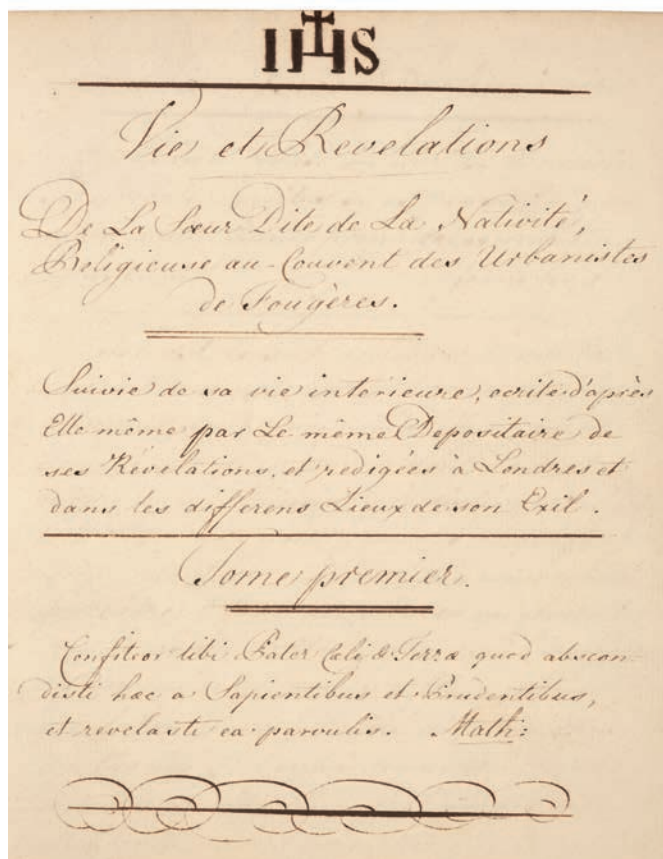 IHS
Vie et Revelations
De La Sœur Dite de La Nativité,
Religieuse au-Couvent des Urbanistes
de Fougères.
Suivie de sa vie interieure, ecrite d'après
Elle même par Le même Depositaire de
ses Révelations, et redigées à Londres et
dans les differens Lieux de son Exil.
Tome premier.
Confiteor tibi Pater Cæli & Terræ quod abscon-
disti hæc a Sapientibus et Prudentibus,
et revelasti ea parvulis. Math: